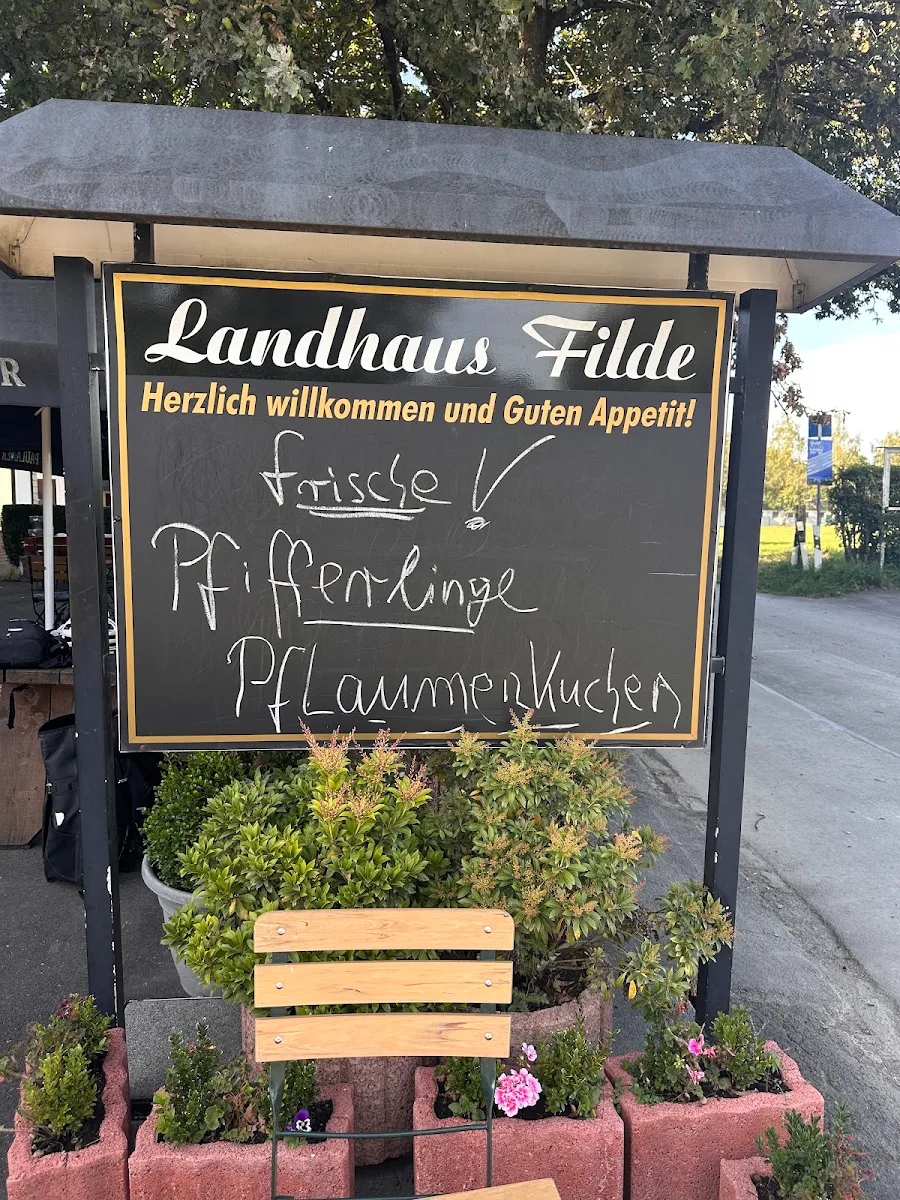 Landhaus Filde
Herzlich willkommen und Guten Appetit!
frische !
Pfifferlinge
Pflaumenkuchen
R
PAULANER